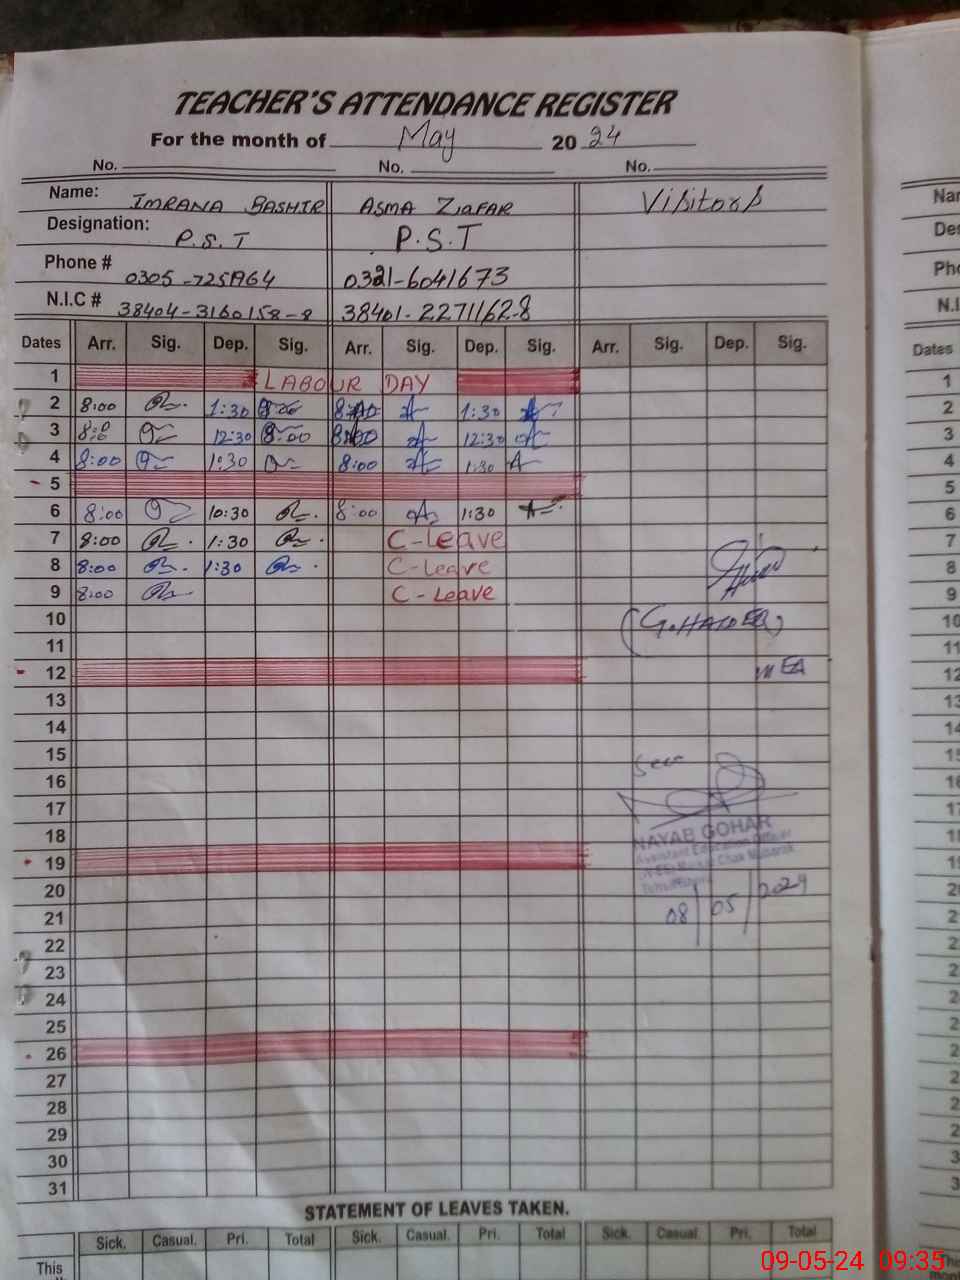 TEACHER'S ATTENDANCE REGISTER
For the month of May 2024
No. No. No.
Name: IMRANA BASHIR ASMA ZAFAR Visitors
Designation: P.S.T P.S.T
Phone # 0321-6041673
N.I.C # 38404-3160158-8 38401-2271162-8
Dates Arr. Sig. Dep. Sig. Arr. Sig. Dep. Sig. Arr. Sig. Dep. Sig.
1 LABOUR DAY
2 8:00 1:30 8:00 1:30
3 8:00 12:30 8:00 12:30
4 8:00 1:30 8:00 1:30
5
6 8:00 10:30 8:00 1:30
7 8:00 1:30 C-Leave
8 8:00 1:30 C-Leave
9 8:00 C-Leave
10
11
12
13
14
15
16
17
18
19
20
21
22
23
24
25
26
27
28
29
30
31
MEA
Seen
NAYAB GOHAR
Assistant Education Officer
08/05/2024
STATEMENT OF LEAVES TAKEN.
Sick. Casual. Pri. Total Sick. Casual. Pri. Total Sick. Casual. Pri. Total
This
Dates
1
2
3
4
5
6
7
8
9
10
11
12
09-05-24 09:35